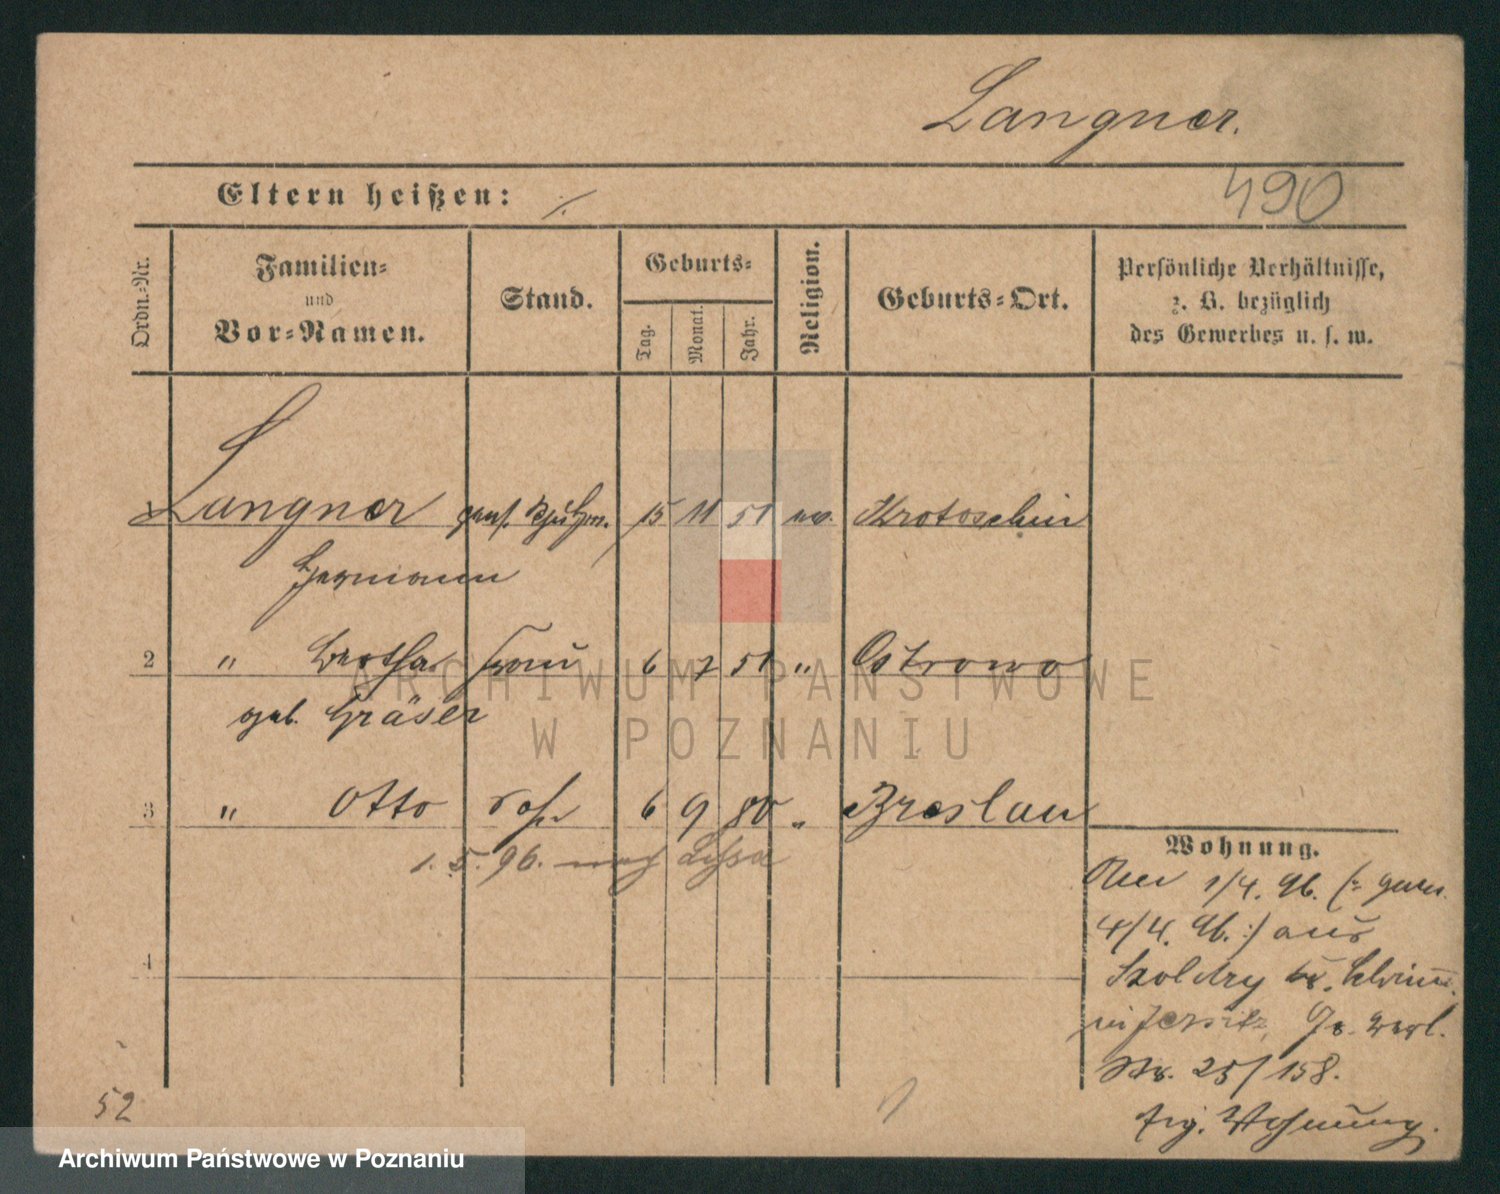 Langner.
Eltern heißen: ./.
490
Ordn.-Nr.
Familien-
und
Vor-Namen.
Stand.
Geburts-
Tag.
Monat.
Jahr.
Religion.
Geburts-Ort.
Persönliche Verhältnisse,
z. B. bezüglich
des Gewerbes u. s. w.
1 Langner pens. Schutzm. 15 11 51 ev. Krotoschin
Hermann
2 " Bertha Frau 6 7 51 " Ostrowo
geb. Gräser
3 " Otto Sohn 6 9 80 " Breslau
1. 5. 96. nach Lissa
4
Wohnung.
1/4. 96. (: gem.
4/4. 96. :) aus
Kr. Schrimm
in Jersitz, Gr. Berl.
Str. 25/158.
Wohnung.
52
1
ARCHIWUM PAŃSTWOWE
W POZNANIU
Archiwum Państwowe w Poznaniu